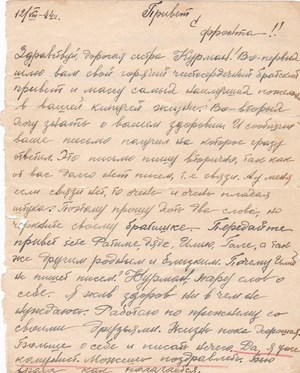 12/VIII-44г. Привет
с фронта!!
Здравствуй, дорогая сестра Нурман! Во-первых
шлю вам свой горячий чистосердечный братский
привет и массу самый наилучший пожелан
в вашей кипучей жизни. Во-вторых
хочу знать о вашем здоровии. И сообщаю
ваше письмо получил на которое сразу
ответил. Это письмо пишу вторично, так как
от вас долго нет писем, т.е. связи. А у меня
если связи нет, то очень и очень плохая
штука. Поэтому прошу хоть два слова, но
черкните своему братишке. Передайте
привет тете Фатиме, дяде, Гале, а так
же другим родным и близким. Почему
не пишет писем? Нурман, пару слов о
себе. Я жив здоров ни в чем не
нуждаюсь. Работаю по прежнему со
своими друзьями. Жизнь пока хорошая.
Больше о себе и писать нечего. Да, я уже
коммунист. Можешь поздравлять.
как полагается.